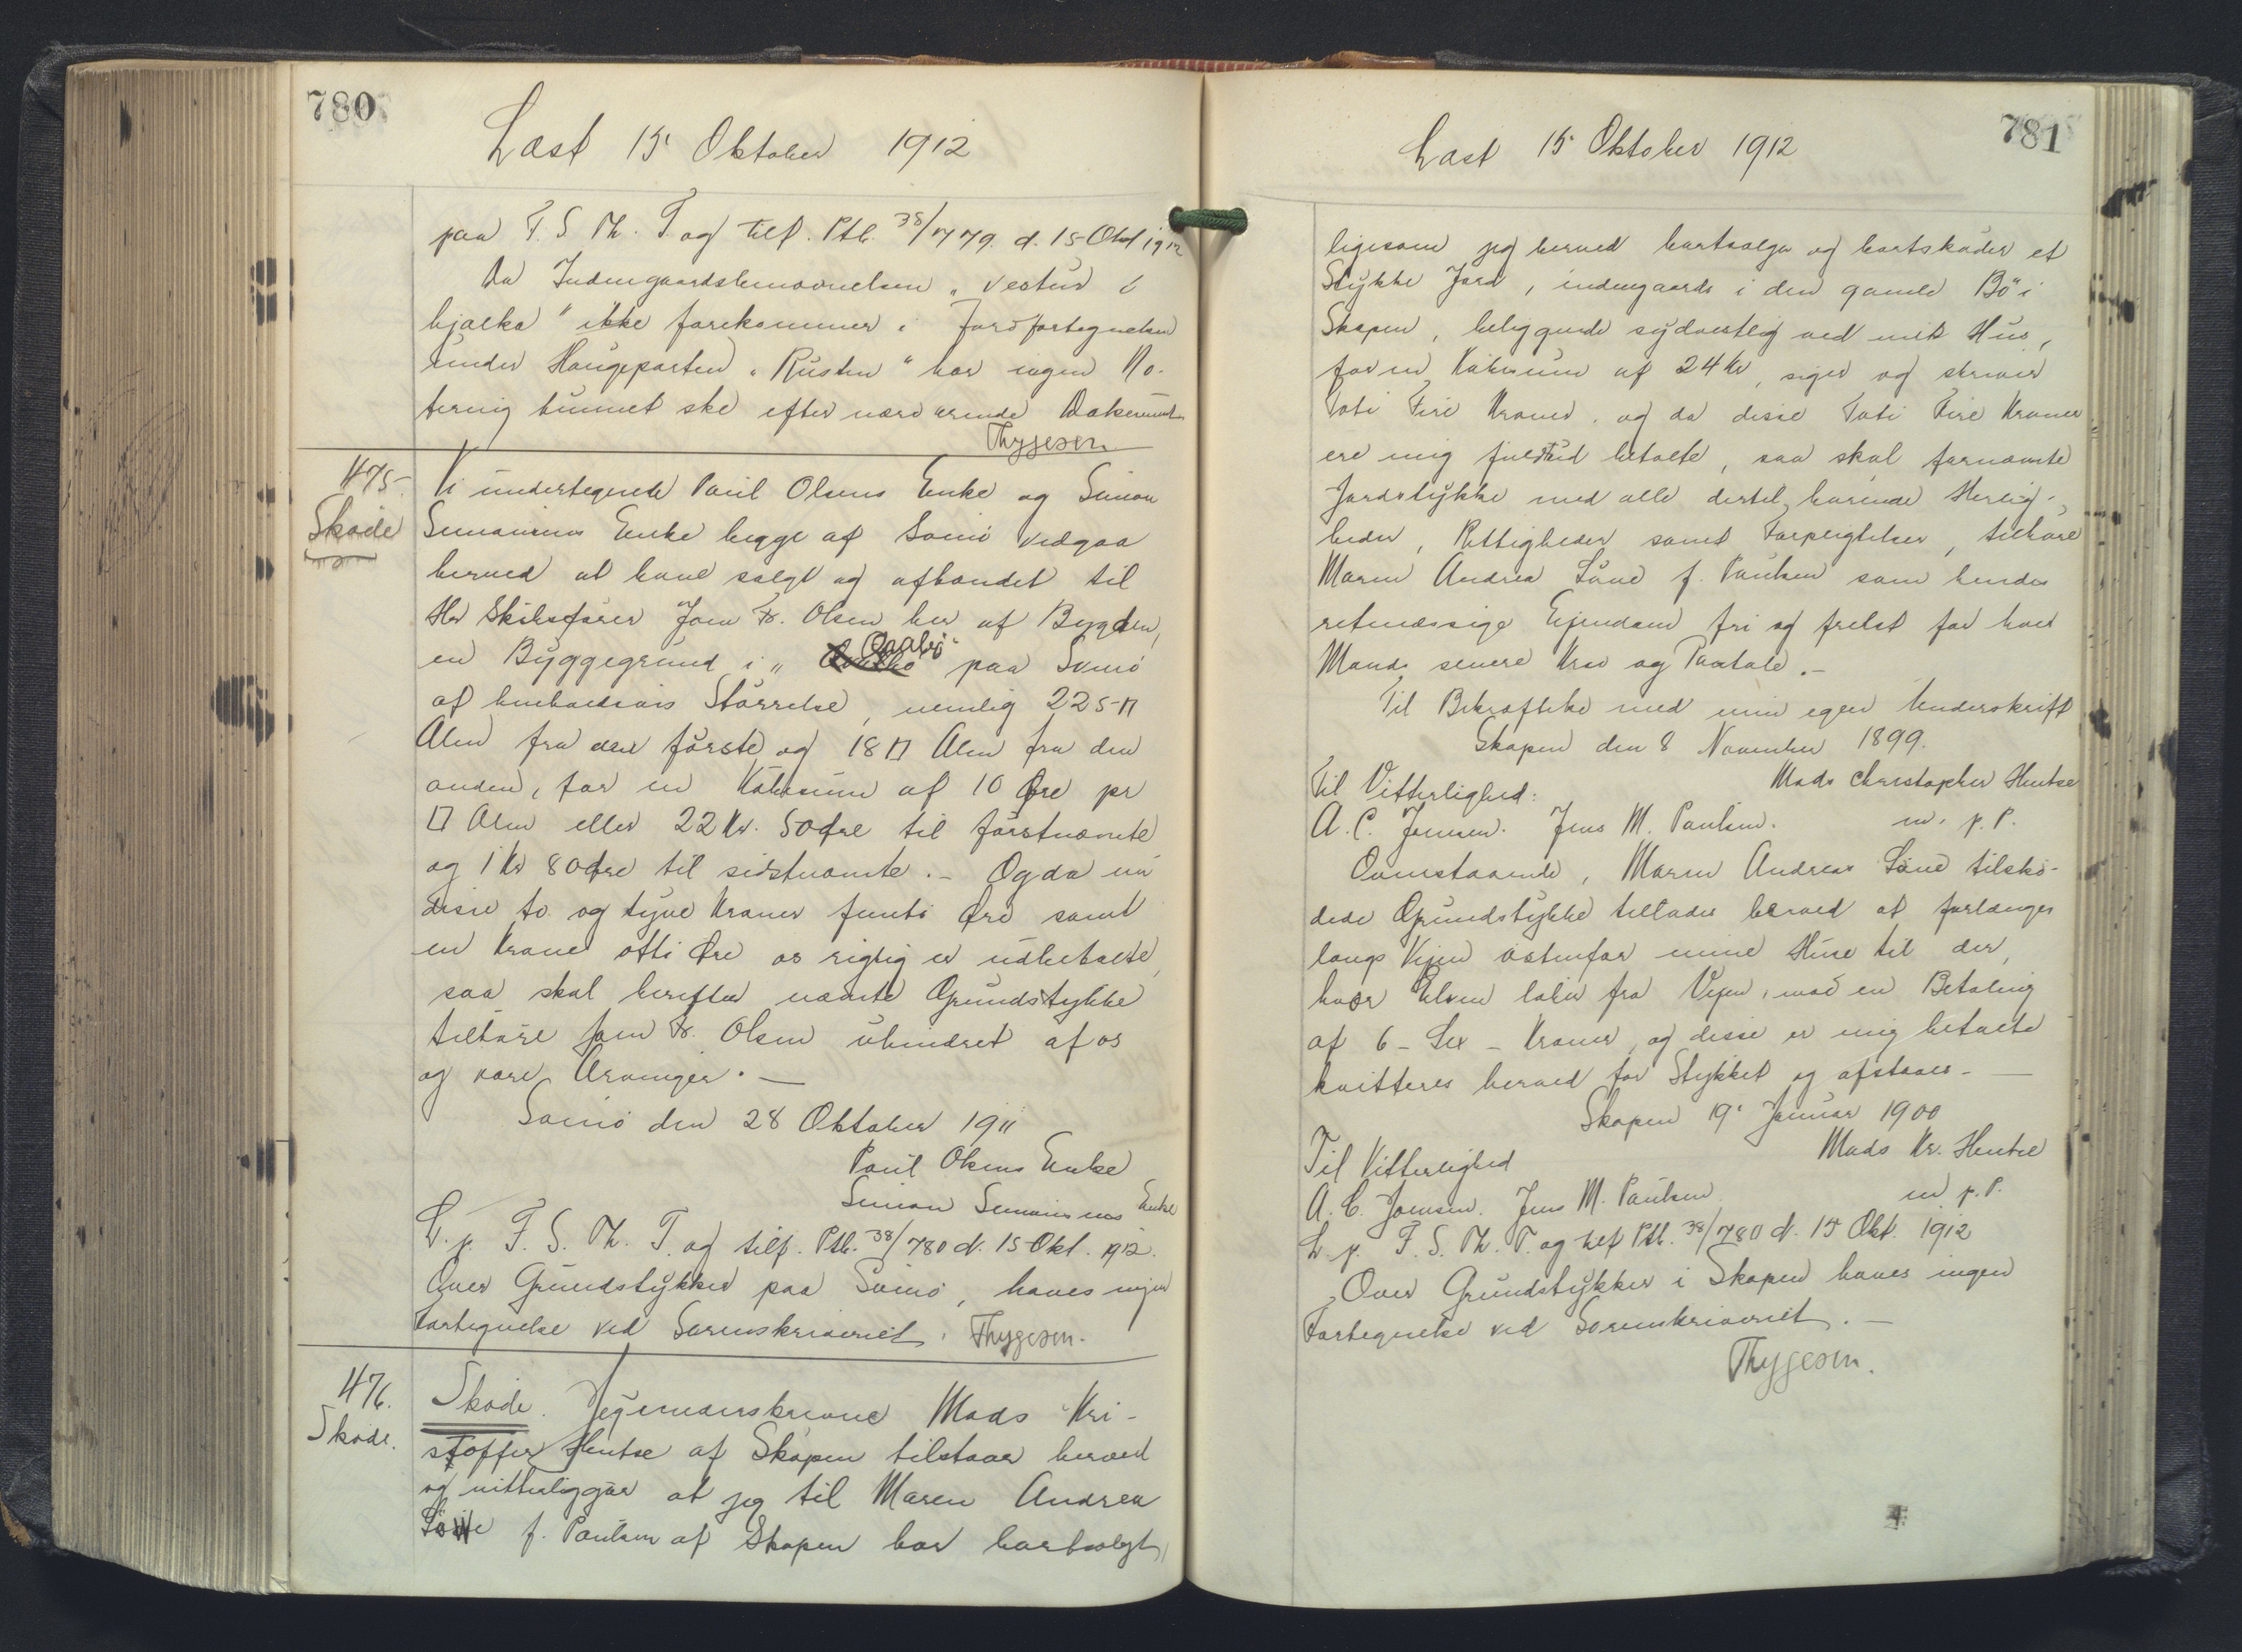 780
Læst 15 Oktober 1912
paa F. S. Th. T. og tilf. Ptb. 38/779. d. 15 Okt 1912
Da Indengaardsbenævnelsen „Vestur í
bjalka" ikke forekommer i Jordfortegnelsen
under Haugeparten „Rusten" har ingen No-
tering kunnet ske efter nærværende Dokument
Thygesen
475.
Skøde
Vi undertegnede Poul Olsens Enke og Simon
Simonsens Enke begge af Svinø vedgaa
herved at have solgt og afhændet til
Hr Skibsfører Joen Fr. Olsen her af Bygden,
en Byggegrund i „ Qvalbø" paa Svinø
af henholdsvis Størrelse, nemlig 225 □
Alen fra den første og 18 □ Alen fra den
anden, for en Købesum af 10 Øre pr
□ Alen eller 22 Kr. 50 Øre til førstnævnte
og 1 Kr 80 Øre til sidstnævnte. – Og da nu
disse to og tyve Kroner femti Øre samt
en Krone otti Øre os rigtig er udbetalte,
saa skal herefter nævnte Grundstykke
tilhøre Joen Fr. Olsen uhindret af os
og vore Arvinger. —
Svinø den 28 Oktober 1911
Poul Olsens Enke
Simon Simonsens Enke
L. p. F. S. Th. T. og tilf. Ptb. 38/780 d. 15 Okt. 1912.
Over Grundstykker paa Svinø, haves ingen
Fortegnelse ved Sorenskriveriet. Thygesen.
476.
Skøde.
Skøde. Jeg underskrevne Mads Kri-
stoffer Hentze af Skopen tilstaar herved
og vitterliggør at jeg til Maren Andrea
f. Paulsen af Skopen har bortsolgt,
781
Læst 15 Oktober 1912
ligesom jeg herved bortsælger og bortskøder et
Stykke Jord, indengaards i den gamle Bø" i
Skopen, beliggende sydvestlig ved mit Hus,
for en Købesum af 24 Kr, siger og skriver
Toti Fire Kroner, og da disse Toti Fire Kroner
ere mig fuldtud betalte, saa skal førnævnte
Jordstykke med alle dertil hørende Herlig-
heder, Rettigheder samt Forpligtelser, tilhøre
Maren Andrea f. Paulsen som hendes
retmæssige Ejendom fri og frelst for hver
Mands senere Krav og Paatale. –
Til Bekræftelse med min egen Underskrift
Skopen den 8 November 1899.
Mads Christopher Hentze
Til Vitterlighed:
A. C. Joensen. Jens M. Paulsen. m. p. P.
Ovenstaaende, Maren Andrea tilskø-
dede Grundstykke tillades herved at forlænges
langs Vejen østenfor mine Huse til der,
hvor Elven løber fra Vejen, mod en Betaling
af 6 – Sex – Kroner, og disse er mig betalte
kvitteres herved for Stykket og afstaaes. —
Skopen 19' Januar 1900
Mads Kr. Hentze
Til Vitterlighed
A. C. Joensen. Jens M. Paulsen m p. P.
L. p. F. S. Th. T. og tilf Ptb. 38/780 d. 15 Okt. 1912
Over Grundstykker i Skopen haves ingen
Fortegnelse ved Sorenskriveriet. —
Thygesen.